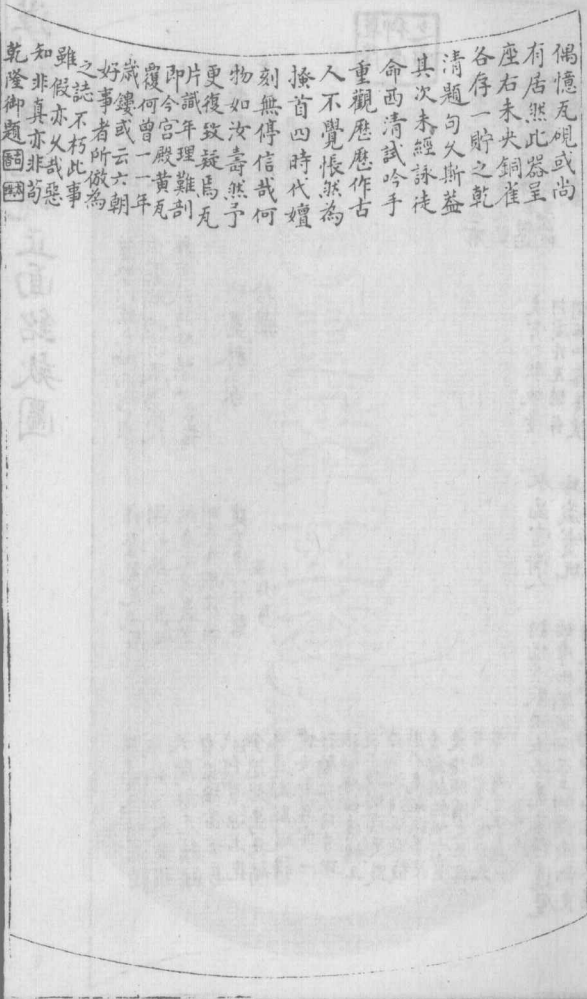 偶憶瓦硯或尚
有居然此器呈
座右未央銅雀
各存一貯之乾
清題句久斯蓋
其次未經詠徒
命西清試吟手
重觀歴歴作古
人不覺悵然為
搔首四時代嬗
刻無停信哉何
物如汝壽然予
更復致疑焉瓦
片識年理難剖
即今宫殿黄瓦
覆何曾一一年
歲鏤或云六朝
好事者所倣為
之誌不朽此事
雖假亦久哉惡
知非真亦非茍
乾隆御題